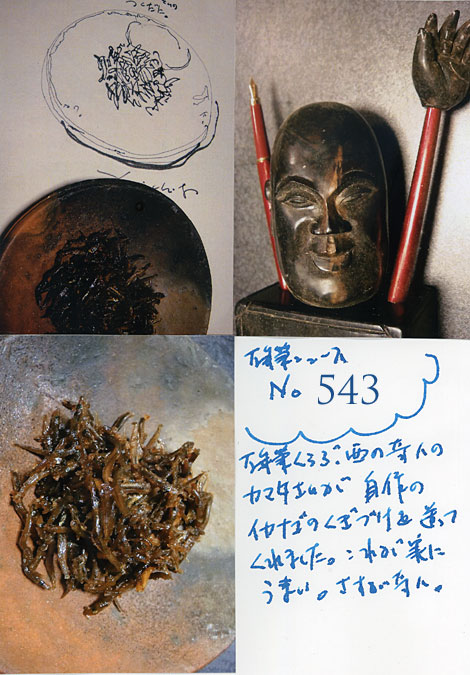 万年筆ニュース
No 543
万年筆くらぶ西の奇人の
カマタさんが 自作の
イカナゴのくぎづけを送って
くれました。これが実に
うまい。さすが奇人。